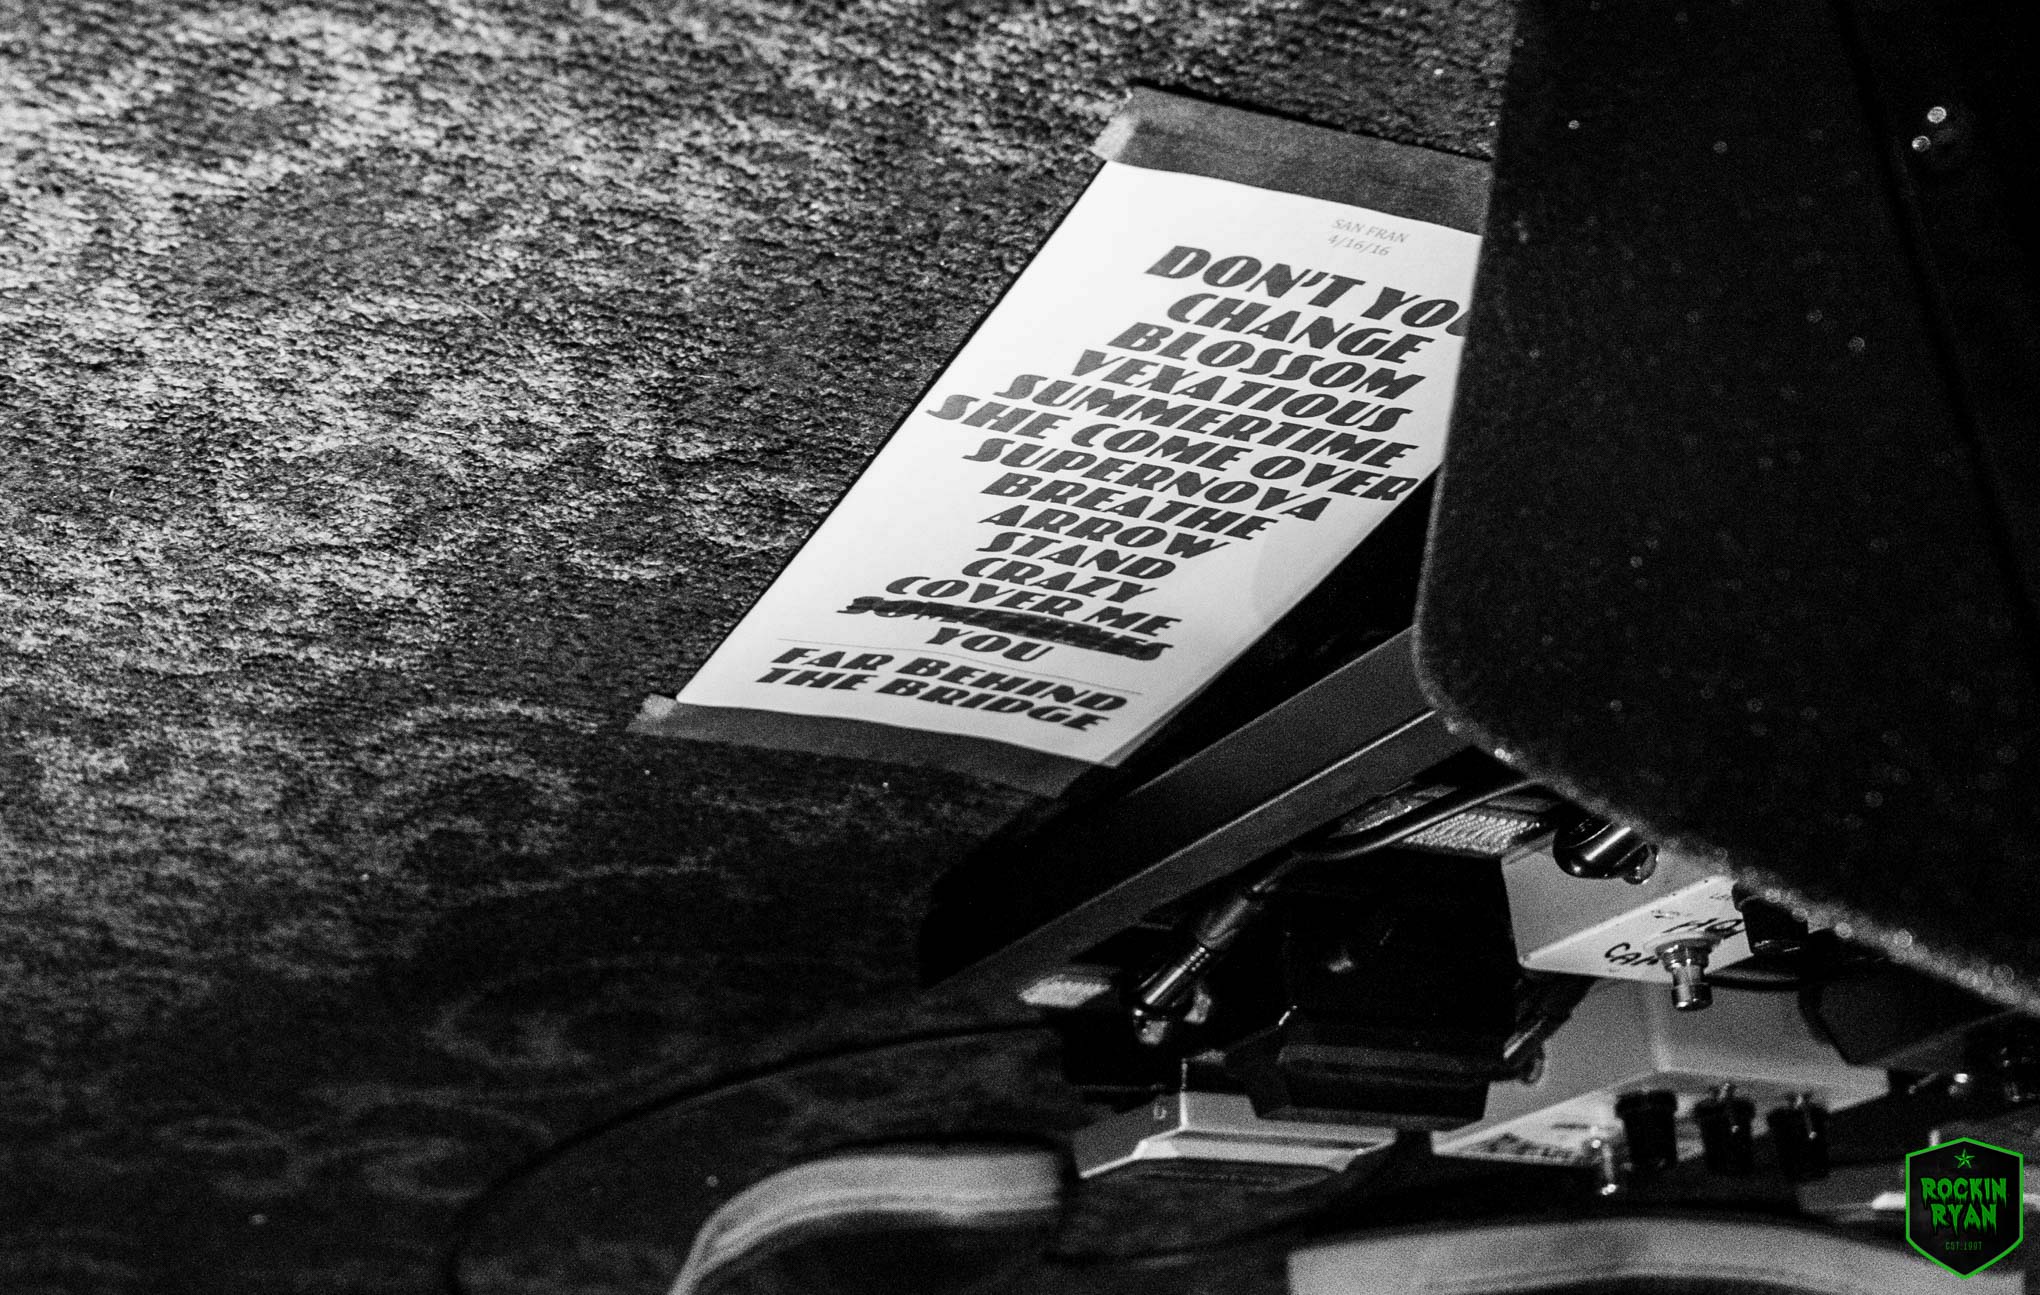 SAN FRAN
4/16/16
DON'T YOU
CHANGE
BLOSSOM
VEXATIOUS
SUMMERTIME
SHE COME OVER
SUPERNOVA
BREATHE
ARROW
STAND
CRAZY
COVER ME
SOMETIMES
YOU
FAR BEHIND
THE BRIDGE
ROCKIN
RYAN